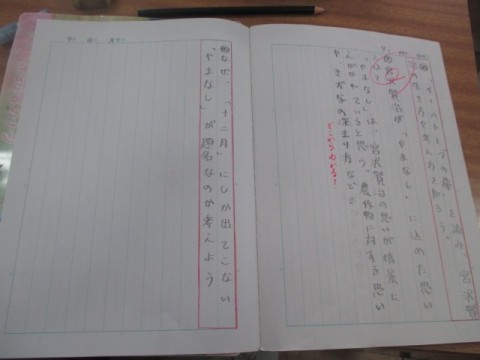 「イーハトーブの夢」を読み 宮沢賢
の生き方や考え方を知ろう。
宮沢賢治が「やまなし」に込めた思い
「やまなし」は、宮沢賢治の思いが情景に
えがかれていると思う。農作物に対する思い
や、きずなの深まり方などが
どこからわかる?
なぜ、「十二月」にしか出てこない
「やまなし」が題名なのか考えよう